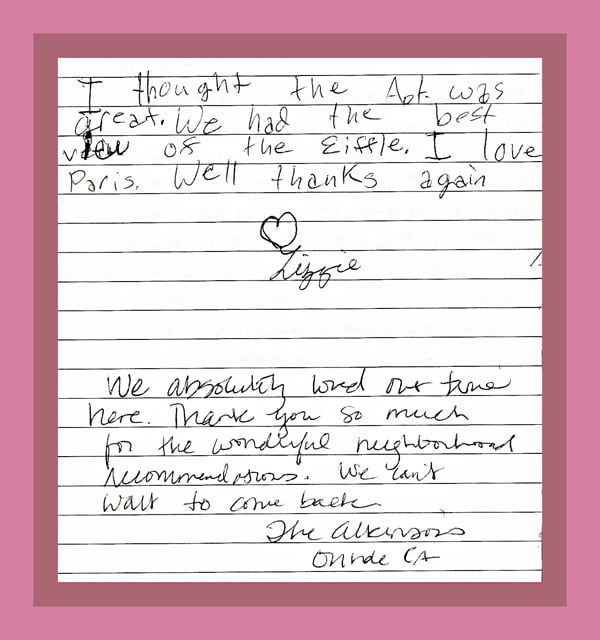 I thought the Apt. was
great. We had the best
view of the Eiffle. I love
Paris. Well thanks again
Lizzie
We absolutely loved our time
here. Thank you so much
for the wonderful neighborhood
recommendations. We can't
wait to come back.
The Atkinsons
CA